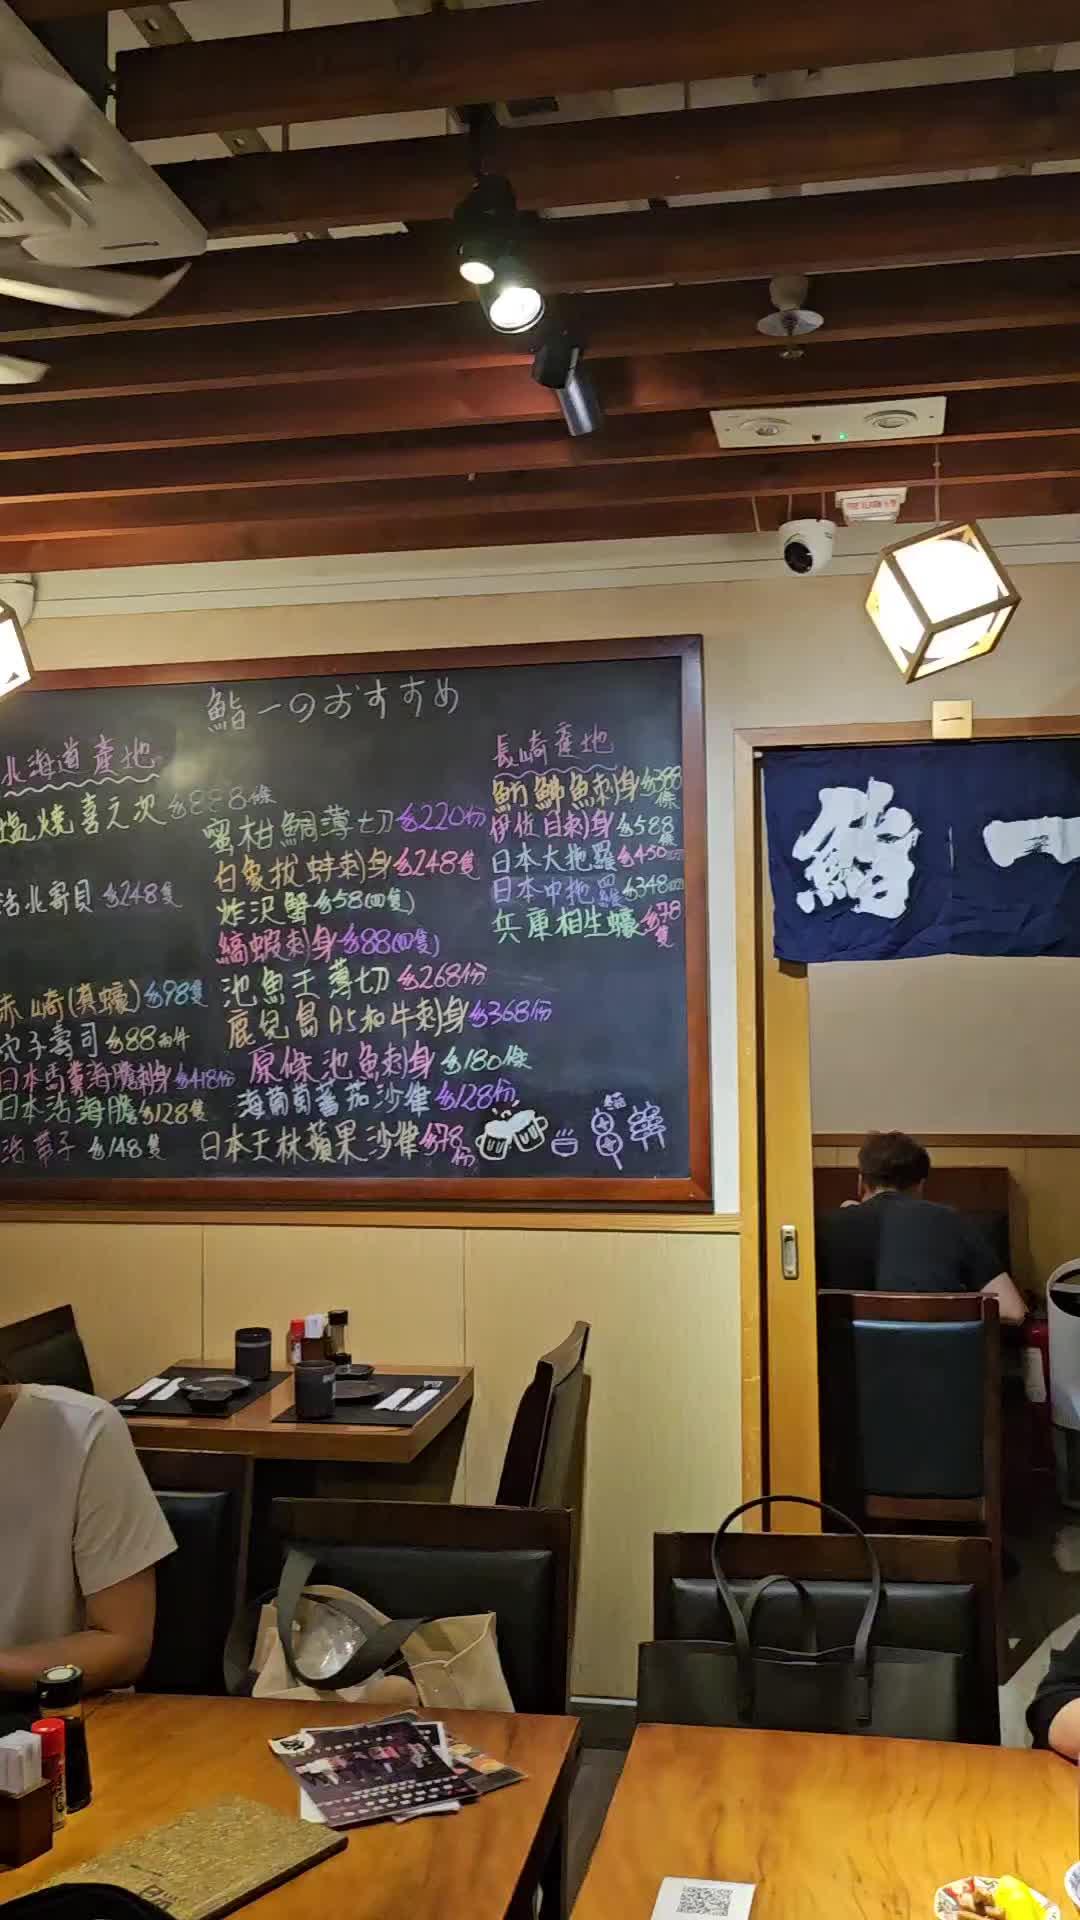 鮨一のおすすめ
北海道產地
塩燒喜之次 $888條
活北寄貝 $248隻
赤崎(真蠔) $98隻
穴子壽司 $88兩件
日本馬糞海膽刺身 $418份
日本活海膽 $128隻
活帶子 $148隻
蜜柑鯛薄切 $220份
白象拔蚌刺身 $248隻
炸沢蟹 $58(四隻)
縞蝦刺身 $88(四隻)
池魚王薄切 $268份
鹿兒島A5和牛刺身 $368份
原條池魚刺身 $180條
海葡萄蕃茄沙律 $128份
日本王林蘋果沙律 $78份
長崎產地
魴鮄魚刺身 $388條
伊佐目刺身 $588條
日本大拖羅 $450
日本中拖羅 $348
兵庫相生蠔 $78隻
一
鮨一